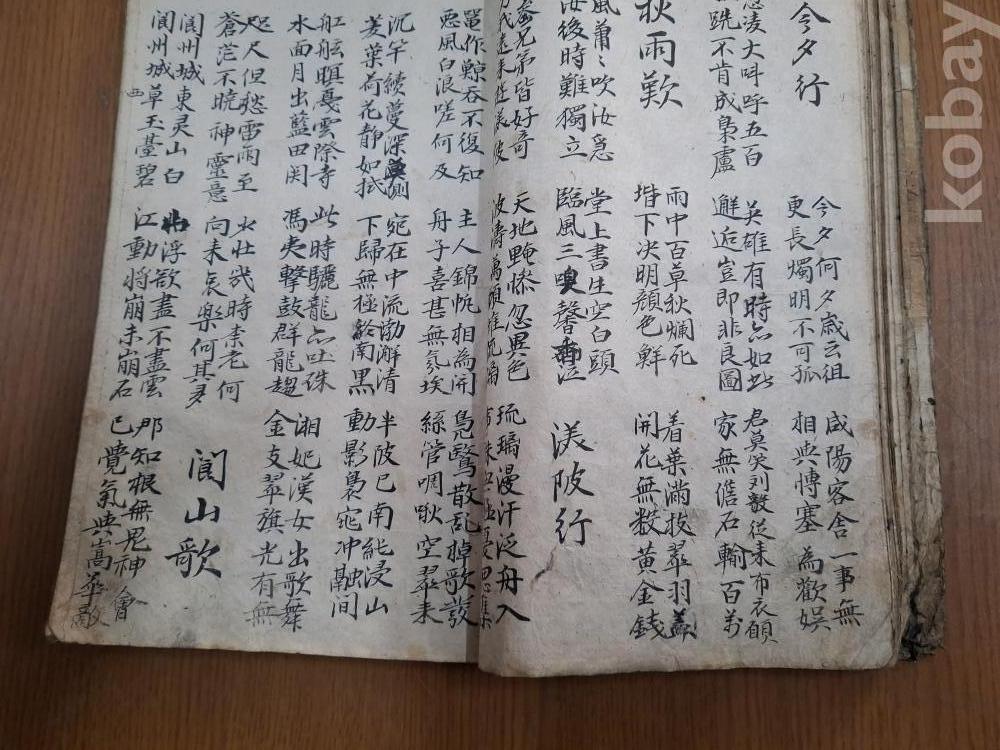 今夕行
今夕何夕歲云徂
更長燭明不可孤
咸陽客舍一事無
相與博塞為歡娛
凌大呌呼五百
跣不肯成梟盧
英雄有時亦如此
邂逅豈即非良圖
君莫笑刘毅從来布衣願
家無儋石輸百万
秋雨歎
雨中百草秋爛死
堦下决明顏色鮮
着葉滿枝翠羽盖
開花無数黄金錢
風蕭〻吹汝急
汝後時難獨立
堂上書生空白頭
臨風三嗅馨香泣
渼陂行
參兄弟皆好奇
我遠来遊渼陂
天地黤慘忽異色
波濤萬頃堆琉璃
琉璃漫汗泛舟入
事殊興極憂思集
鼉作鯨吞不復知
惡風白浪嗟何及
主人錦帆相為開
舟子喜甚無氛埃
鳧鷖散乱棹歌發
絲管啁啾空翠来
沉竿續蔓深莫測
菱葉荷花静如拭
宛在中流渤澥清
下歸無極終南黒
半陂已南純浸山
動影裊窕冲融间
舡舷暝戛雲際寺
水面月出藍田関
此時驪龍亦吐珠
馮夷擊鼓群龍趨
湘妃漢女出歌舞
金支翠旗光有無
咫尺但愁雷雨至
蒼茫不曉神靈意
少壮幾時柰老何
向来哀樂何其多
閬山歌
閬州城東灵山白
閬州城西草玉䑓碧
松浮欲盡不盡雲
江動将崩未崩石
那知根無鬼神會
已覺氣與嵩華敵
kobay